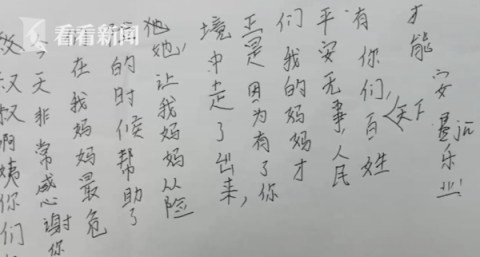 看看新闻
叔叔啊姨你们
今天非常感谢你
在我妈妈最危
的时候帮助了
她，让我妈妈从险
境中走了出来，
正是因为有了你
们我的妈妈才
平安无事，人民
有你们，天下百姓
才能安乐业